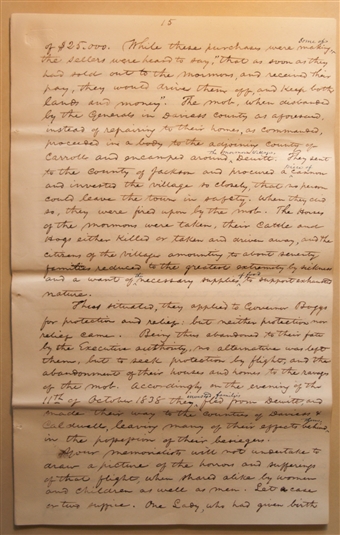 15
of $25.000. While these purchases were making
some of
the sellers were heard to say, "that as soon as they
had sold out to the Mormons, and received their
pay, they would drive them off, and keep both
lands and money". The mob, when disbanded
by the Generals in Daviess County as aforesaid,
instead of repairing to their homes, as commanded,
proceeded in a body to the adjoining County of
Carroll and encamped around Dewitt. They sent
to the County of Jackson and procured a cannon
piece of
and invested the village so closely, that no person
could leave the town in safety. When they did
so, they were fired upon by the mob. The Horses
of the mormons were taken, their Cattle and
Hogs either killed or taken and driven away, and the
citizens of the village amounting to about seventy
families reduced to the greatest extremity by sickness
and a want of necessary supplies to support exhausted
nature.
Thus situated, they applied to Governor Boggs
for protection and relief: but neither protection nor
relief came. Being thus abandoned to their fate
by the Executive authority, no alternative was left
them, but to seek protection by flight, and the
abandonment of their houses and homes to the ravages
of the mob. Accordingly on the evening of the
11th of October 1838 they fled from Dewitt, and
made their way to the Counties of Daviess &
Caldwell, leaving many of their effects behind
in the possession of their besiegers.
Your memorialists will not undertake to
draw a picture of the horrors and sufferings
of that flight, when shared alike by women
and children as well as men. Let a case
or two suffice. One Lady, who had given birth